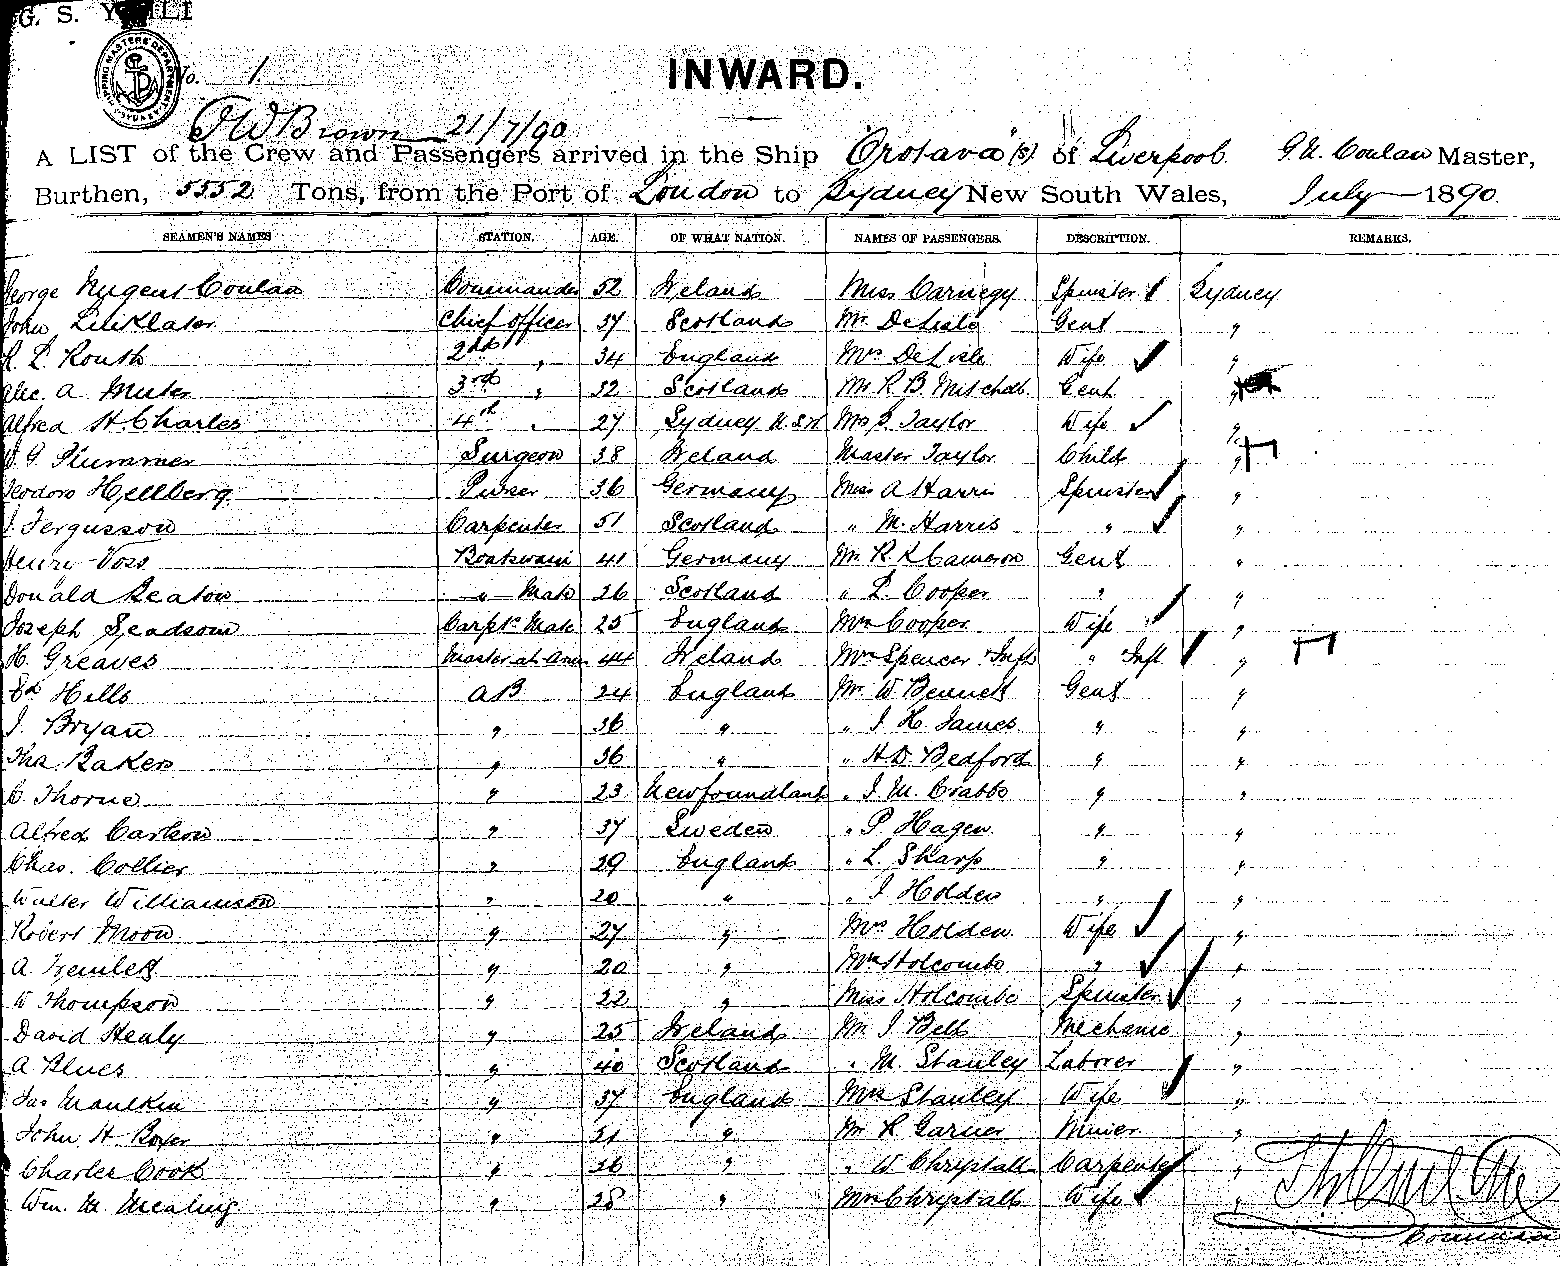 G. S.
No. 1
INWARD.
J W Brown 21/7/90
A LIST of the Crew and Passengers arrived in the Ship "Orotava" (s) of Liverpool G.N. Conlan Master,
Burthen, 5552 Tons, from the Port of London to Sydney New South Wales, July 1890.
SEAMEN'S NAMES STATION. AGE. OF WHAT NATION. NAMES OF PASSENGERS. DESCRIPTION. REMARKS.
George Nugent Conlan Commander 52 Ireland Miss Carnegy Spinster Sydney
John Linklater Chief officer 37 Scotland Mr DeLisle Gent "
R. L. Routh 2nd " 34 England Mrs DeLisle Wife "
Alic. A Muter 3rd " 32 Scotland Mr R B Mitchell Gent "
Alfred H. Charles 4th " 27 Sydney N.S.W Mrs S Taylor Wife "
Plummer Surgeon 38 Ireland Master Taylor Child "
Teodoro Hjellberg Purser 36 Germany Miss A Harris Spinster "
J. Fergusson Carpenter 51 Scotland " M. Harris " "
Henry Voss Boatswain 41 Germany Mr R K Cameron Gent "
Donald Beaton " Mate 26 Scotland " L. Cooper " "
Joseph Seadsom Carptr Mate 25 England Mrs Cooper Wife "
H. Greaves Master at Arms 44 Ireland Mrs Spencer & Inft " Inft "
Ed Hills AB 24 England Mr W Bennett Gent "
J. Bryan " 36 " " J. H. James " "
Tha Bakers " 36 " " H D. Bedford " "
C. Thorne " 23 Newfoundland " J. M. Crabbs " "
Alfred Carlson " 37 Sweden " P Hagen " "
Chas. Collier " 29 England " L. Sharp " "
Walter Williamson " 20 " " J Holden " "
Robert Moon " 27 " Mrs Holden Wife "
A Tremlett " 20 " Mrs Holcombe " "
W Thompson " 22 " Miss Holcombe Spinster "
David Healy " 25 Ireland Mr J Bell Mechanic "
A Blues " 40 Scotland " M. Stanley Laborer "
Jas Maulkin " 37 England Mrs Stanley Wife "
John H. Boxer " 21 " Mr R Garner Miner "
Charles Cook " 26 " " W Chrystall Carpenter "
Wm. M. Mealing " 28 " Mrs Chrystall Wife "